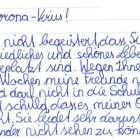 orona-Krise!
nicht begeistert, dass Si
iedliches und schönes Lebe
platzt sind. Wegen Ihne
Wochen meine Freunde n
d darf nicht in die Schul
d schuld, dass meiner O
t. Sie leidet sehr daru
nder nicht sehen zu